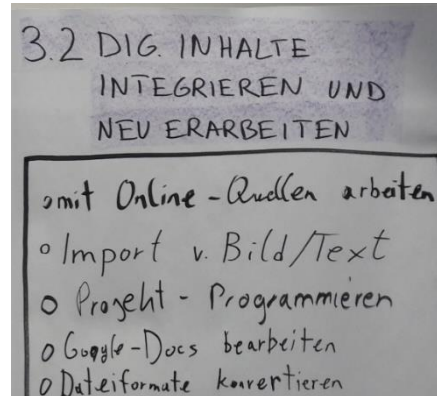 3.2 DIG. INHALTE
INTEGRIEREN UND
NEU ERARBEITEN
mit Online-Quellen arbeiten
Import v. Bild/Text
Projekt - Programmieren
Google-Docs bearbeiten
Dateiformate konvertieren